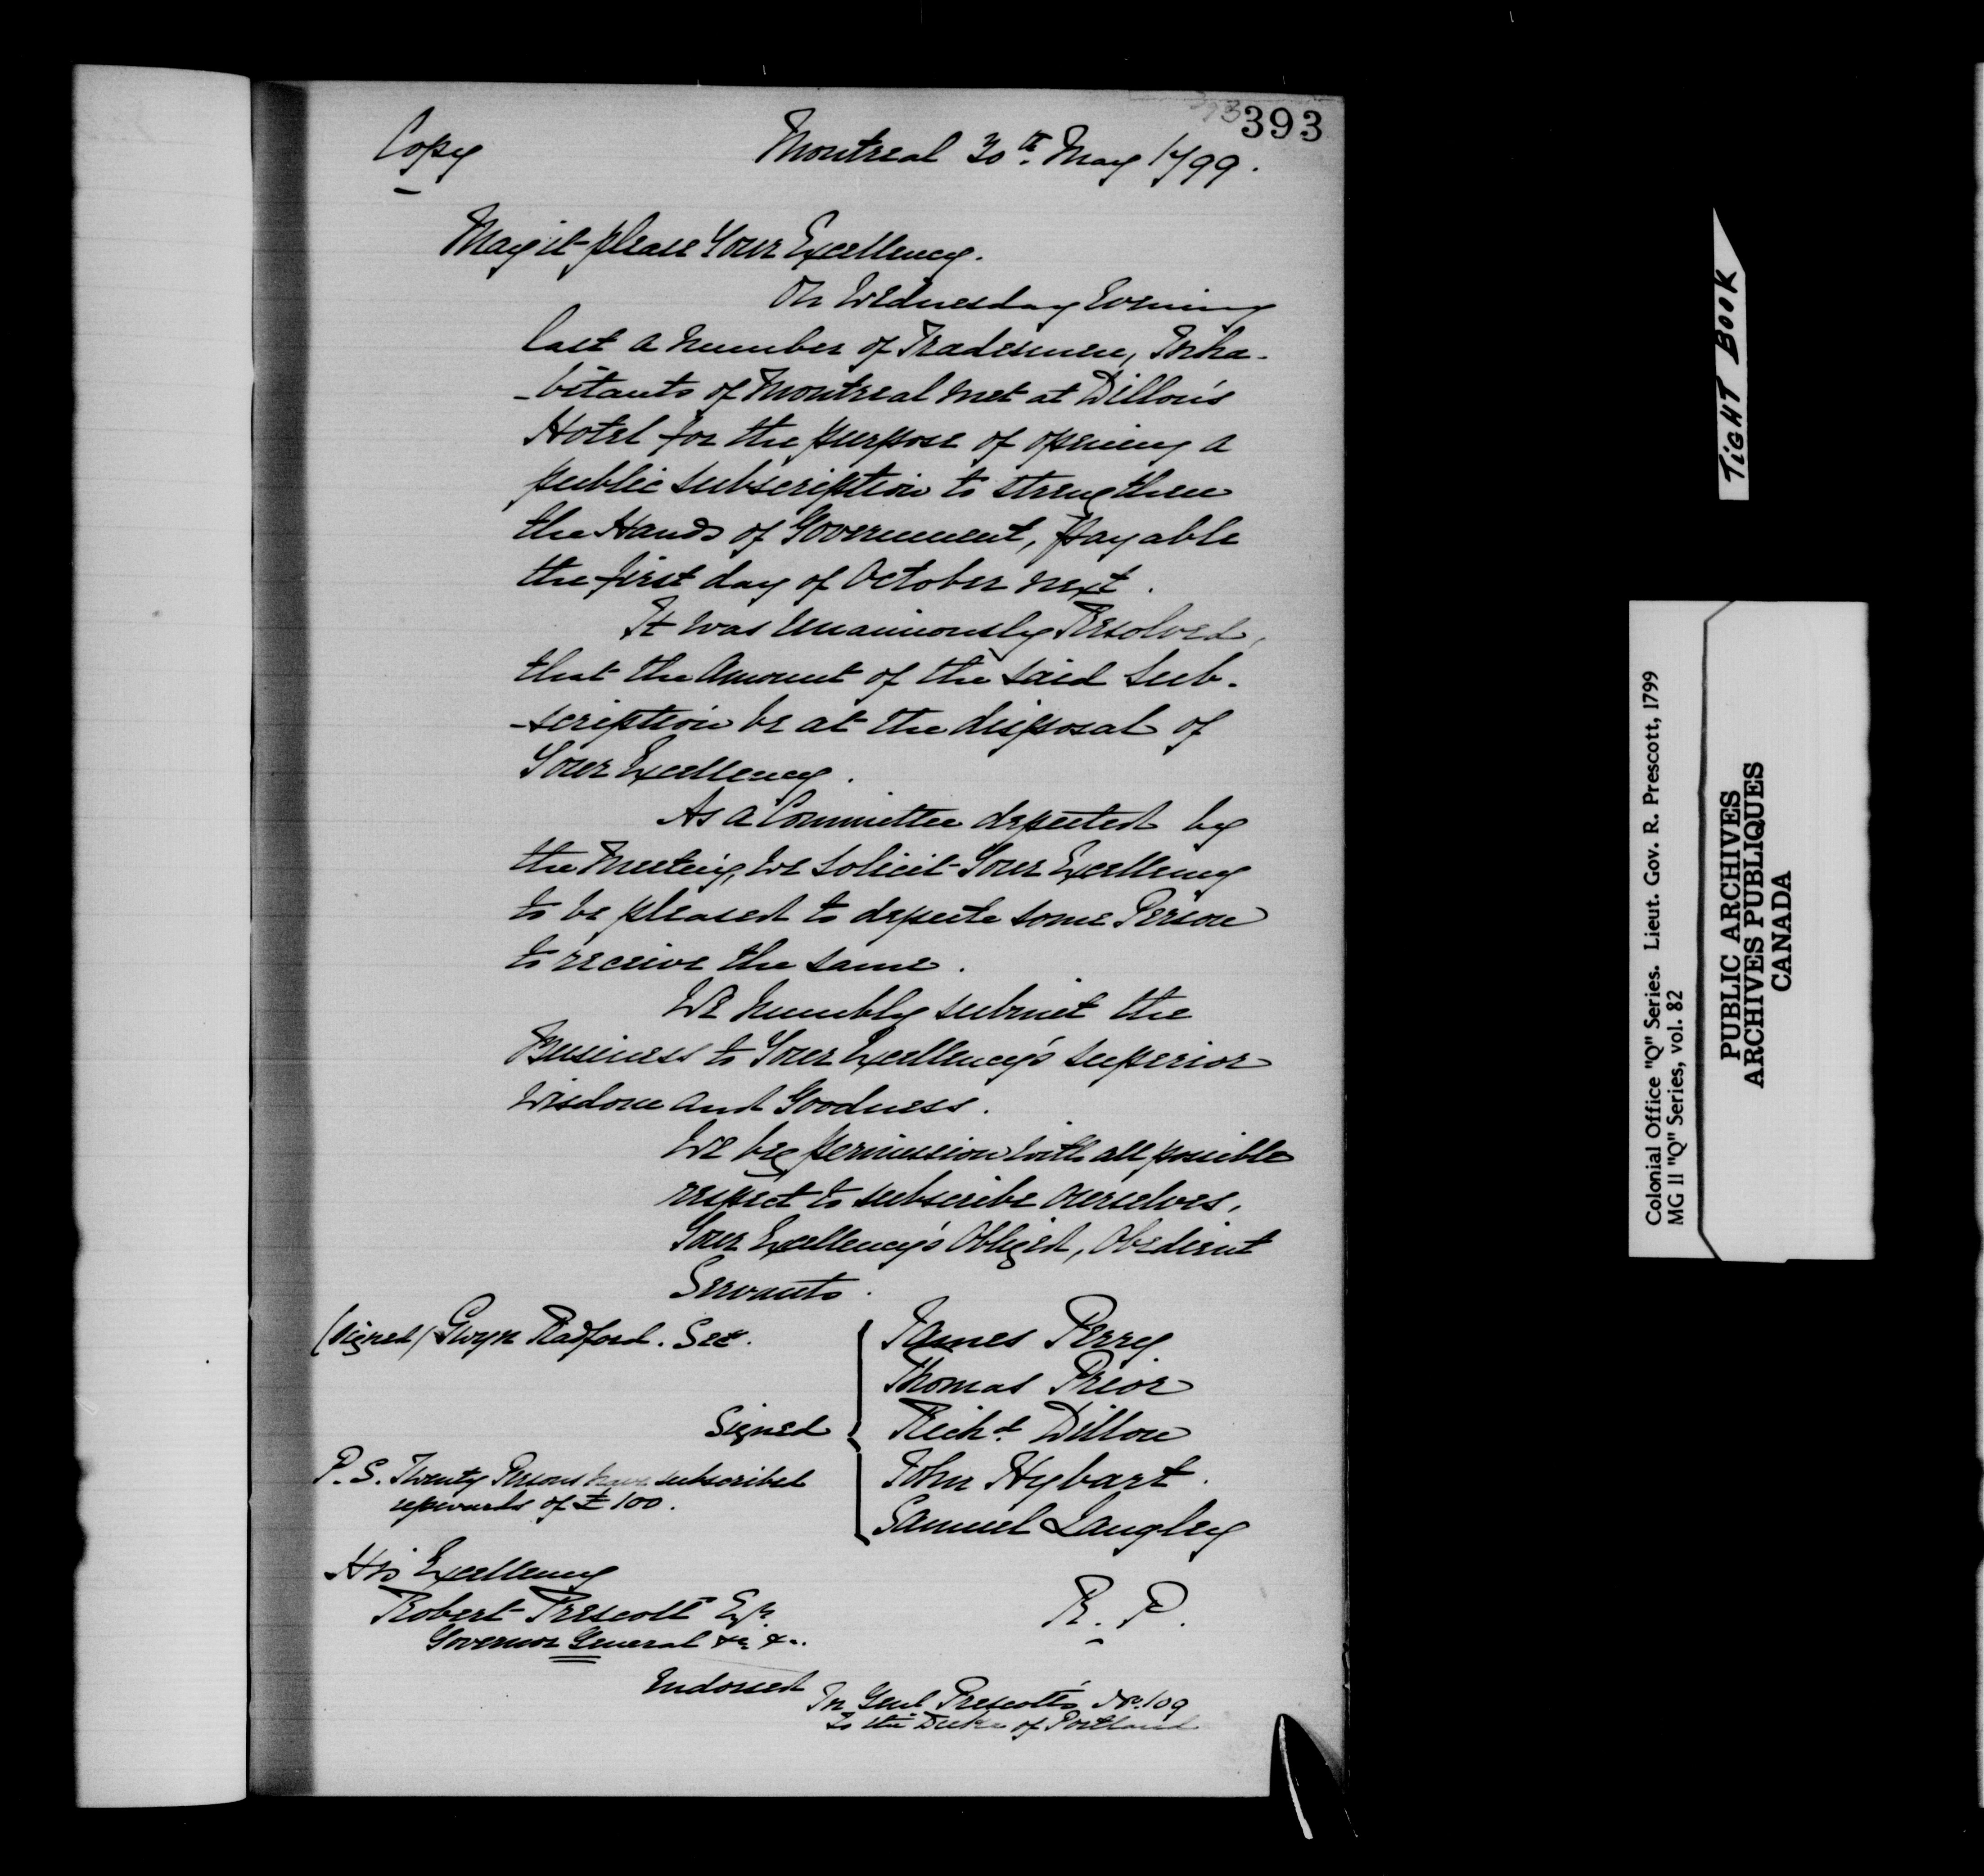 393
Copy Montreal 30th May 1799.
May it please Your Excellency.
On Wednesday Evening
last a number of Tradesmen, Inha-
-bitants of Montreal met at Dillon's
Hotel for the purpose of opening a
public subscription to strengthen
the Hands of Government, payable
the first day of October next.
It was unanimously Resolved,
that the Amount of the said Sub-
-scription be at the disposal of
Your Excellency.
As a Committee deputed by
the Meeting, we solicit Your Excellency
to be pleased to depute some Person
to receive the same.
We humbly submit the
Business to Your Excellency's superior
Wisdom and Goodness.
We beg permission with all possible
respect to subscribe ourselves,
Your Excellency's Obliged, Obedient
Servants.
(signed) Gwyn Radford. Secy.
James Perry
Thomas Prior
Signed Richd Dillon
John Hybart.
Samuel Langley
P.S. Twenty Persons have subscribed
upwards of £100.
His Excellency
Robert Prescott Esqr.
Governor General &c &c.
R. P.
Endorsed In Genl Prescott's No. 109
To the Duke of Portland
TIGHT BOOK
Colonial Office "Q" Series. Lieut. Gov. R. Prescott, 1799
MG 11 "Q" Series, vol. 82
PUBLIC ARCHIVES
ARCHIVES PUBLIQUES
CANADA